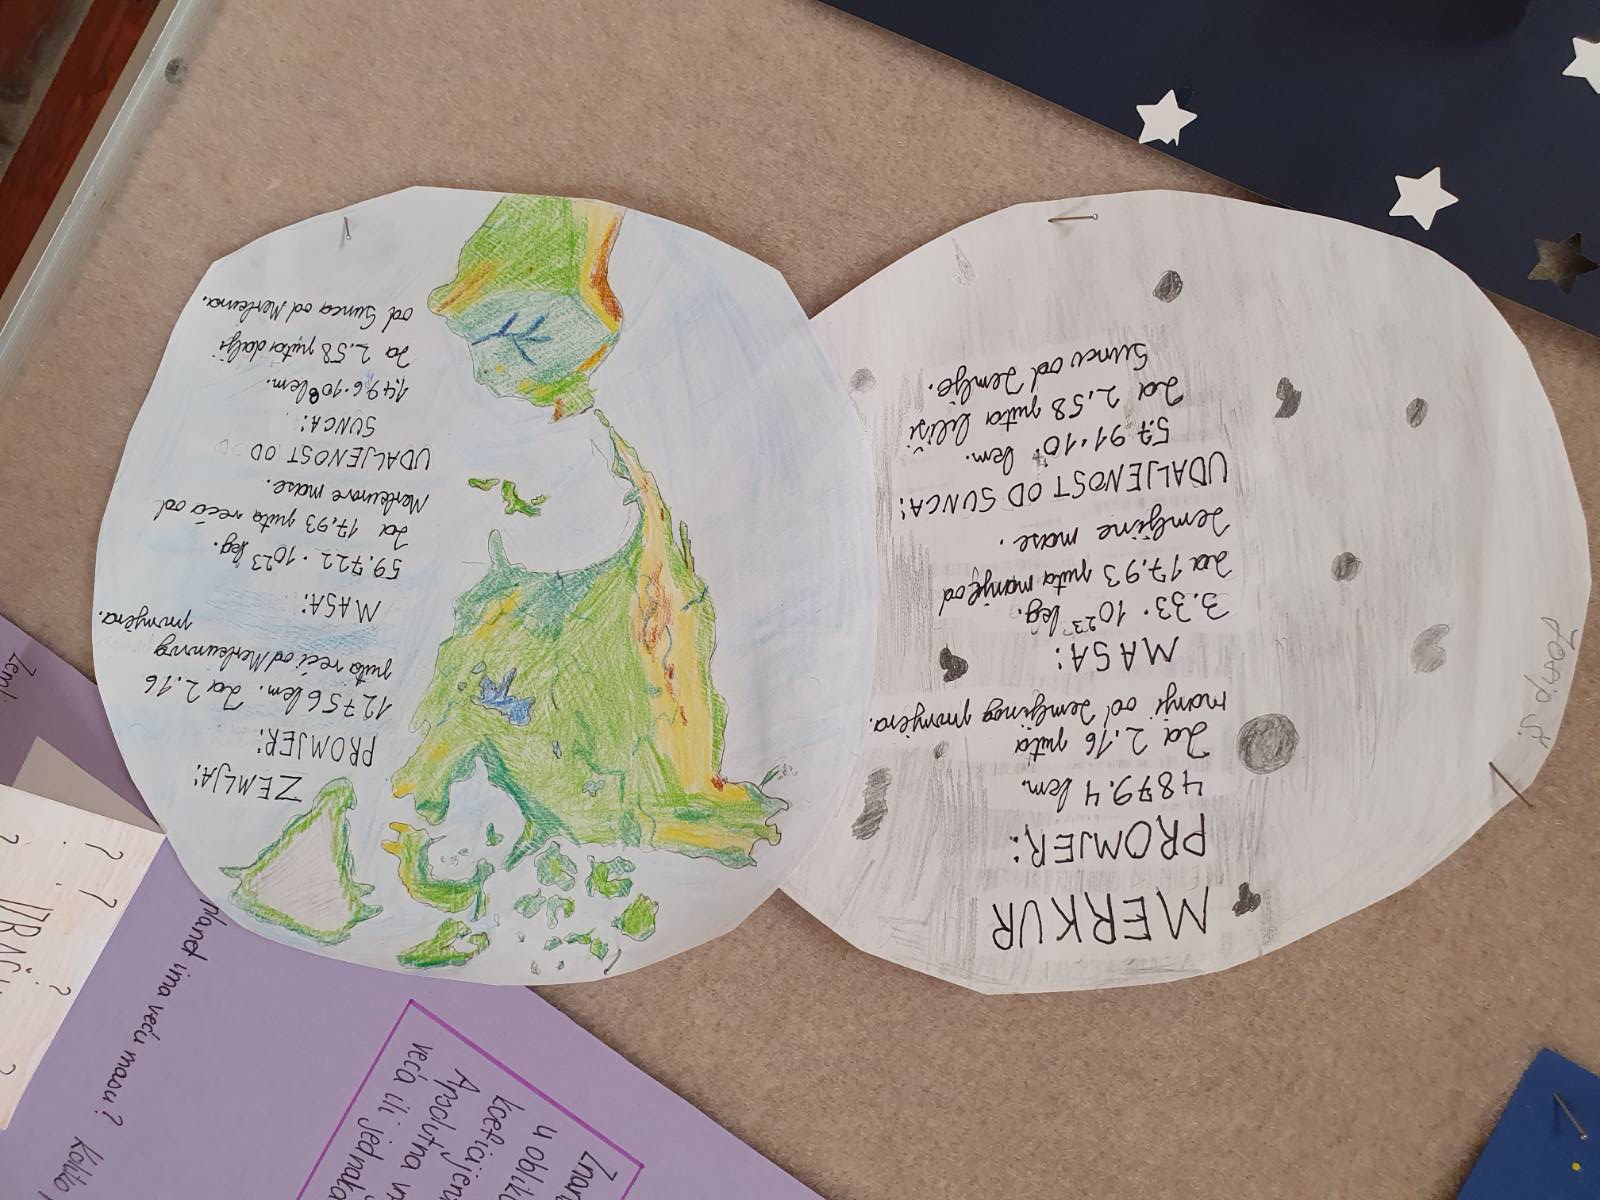 MERKUR
PROMJER:
4879.4 km.
Za 2.16 puta
manji od Zemljinog promjera.
MASA:
3.33 · 10²³ kg.
Za 17.93 puta manje od
Zemljine mase.
UDALJENOST OD SUNCA:
57.91·10⁶ km.
Za 2.58 puta bliži
Suncu od Zemlje.
Josip Š.
ZEMLJA:
PROMJER:
12756 km. Za 2.16
puta veći od Merkurovog
promjera.
MASA:
59.722 · 10²³ kg.
Za 17.93 puta veća od
Merkurove mase.
UDALJENOST OD
SUNCA:
1,496·10⁸ km.
Za 2.58 puta dalji
od Sunca od Merkura.
Zemlj
planet ima veću masu? Koliko
? ?
? ?
Znan
u oblik
koeficijen
Apsolutna v
veća ili jednaka